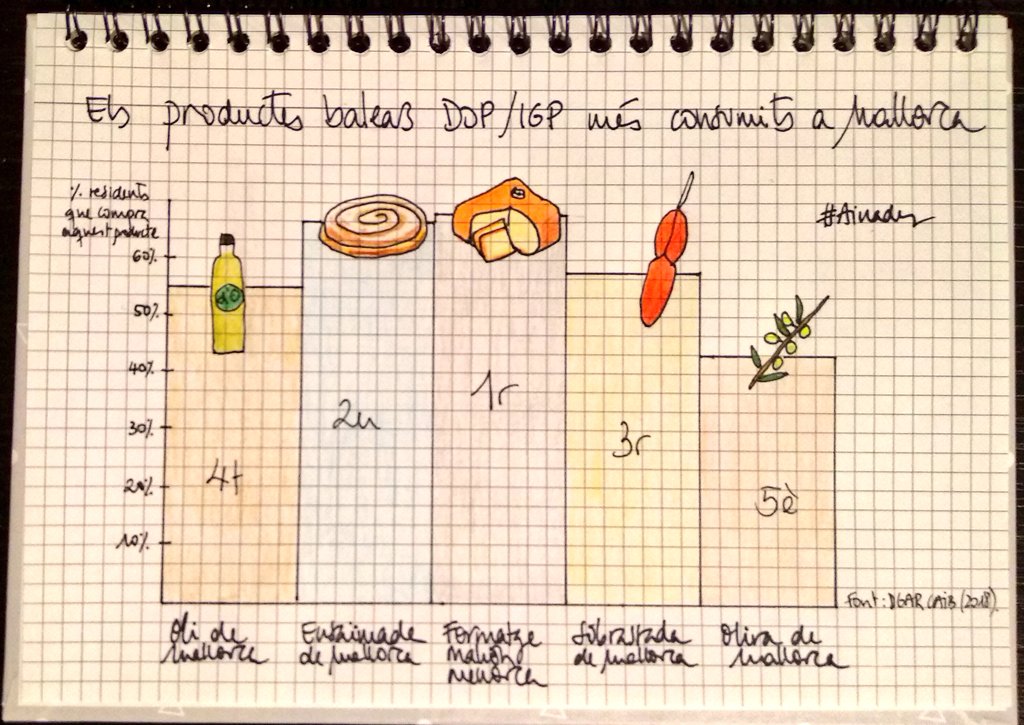 Els productes balears DOP/IGP més consumits a Mallorca
% residents
que compra
aquest producte
#Ainades
60%
50%
40%
30%
20%
10%
4t
2n
1r
3r
5è
Font: DGAR CAIB (2018).
Oli de
Mallorca
Ensaimada
de Mallorca
Formatge
Mahón
Menorca
Sobrassada
de Mallorca
Oliva de
Mallorca